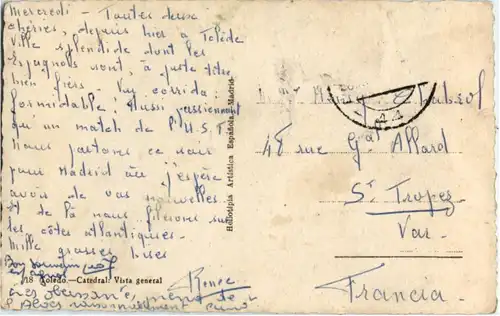 Mercredi - Toutes deux
chéries, depuis hier à Tolède
Ville splendide dont les
Espagnols sont, à juste titre
bien fiers - Vu corrida:
formidable! Aussi passionnant
qu'un match de l'U.S.T.
Nous partons ce soir
pour Madrid où j'espère
avoir de vos nouvelles.
Et de là nous filerons sur
les côtes atlantiques.
Mille grosses bises
Renée
Bon souvenir
18 Toledo.—Catedral: Vista general
Heliotipia Artística Española.-Madrid.
48 rue Gal Allard
St Tropez
Var.
Francia